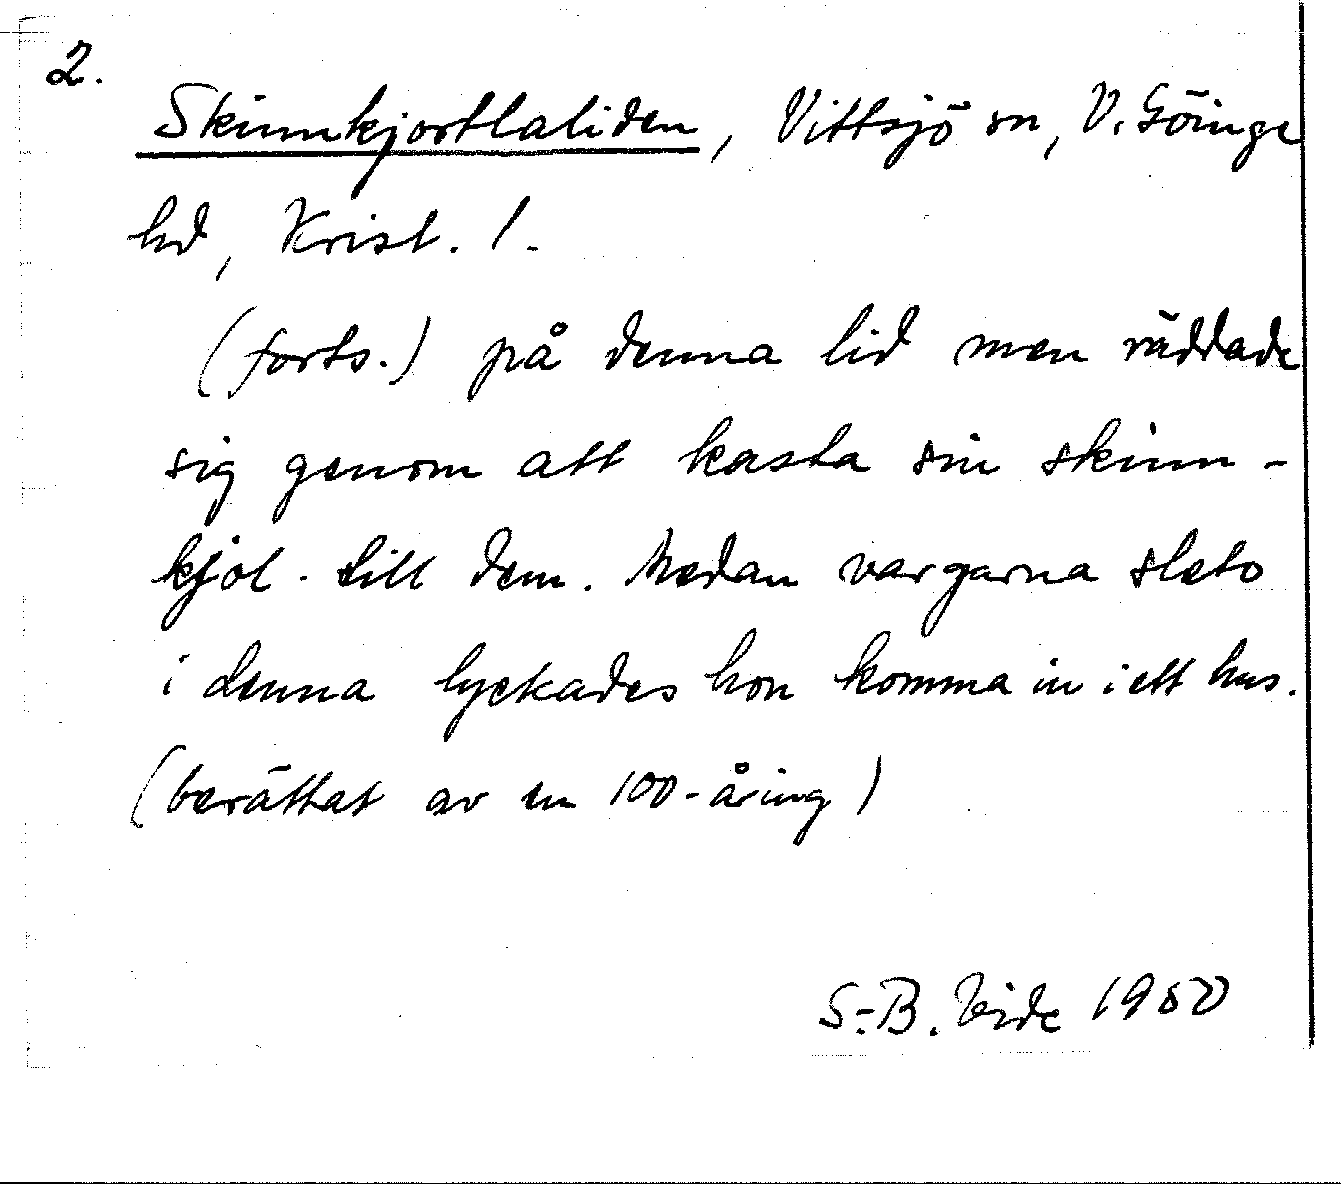 2.
Skinnkjortlaliden, Vittsjö sn, V. Göinge
hd, Krist. l.
(forts.) på denna lid men räddade
sig genom att kasta sin skinn-
kjol till dem. Medan vargarna sleto
i denna lyckades hon komma in i ett hus.
(berättat av en 100-åring)
S.-B. Vide 1950